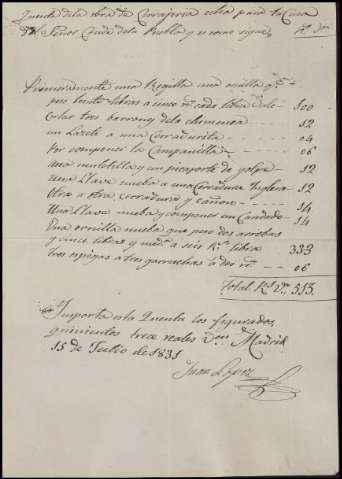 Quenta dela obra de Cerrageria echa para la Casa
del Señor Conde dela Puebla y es como sigue,
Rs Vn
Primeramente una Regilla una ornilla qe
peso treinta libras a cinco rs cada libra
Colar tres barrones dela chimenea ---- 12
un Laxete a una Cerradurita ---- 04
Por componer la Campanilla ---- 06
una muletilla y un picaporte de golpe -- 12
Una Llave nueba a una Cerradura Inglesa 12
Otra a otra cerradura y cañon ---- 14
Una Llave nueba y componer un Candado - 14
Una ornilla nueba que peso dos arrobas
y cinco libras y media a seis Rs libra 333
tres espigas a tres garruchas a dos rs ---- 06
Total Rs Vn 513
Importa esta Quenta los figurados
quinientos trece reales Von Madrid
15 de Julio de 1831
Juan Lopez